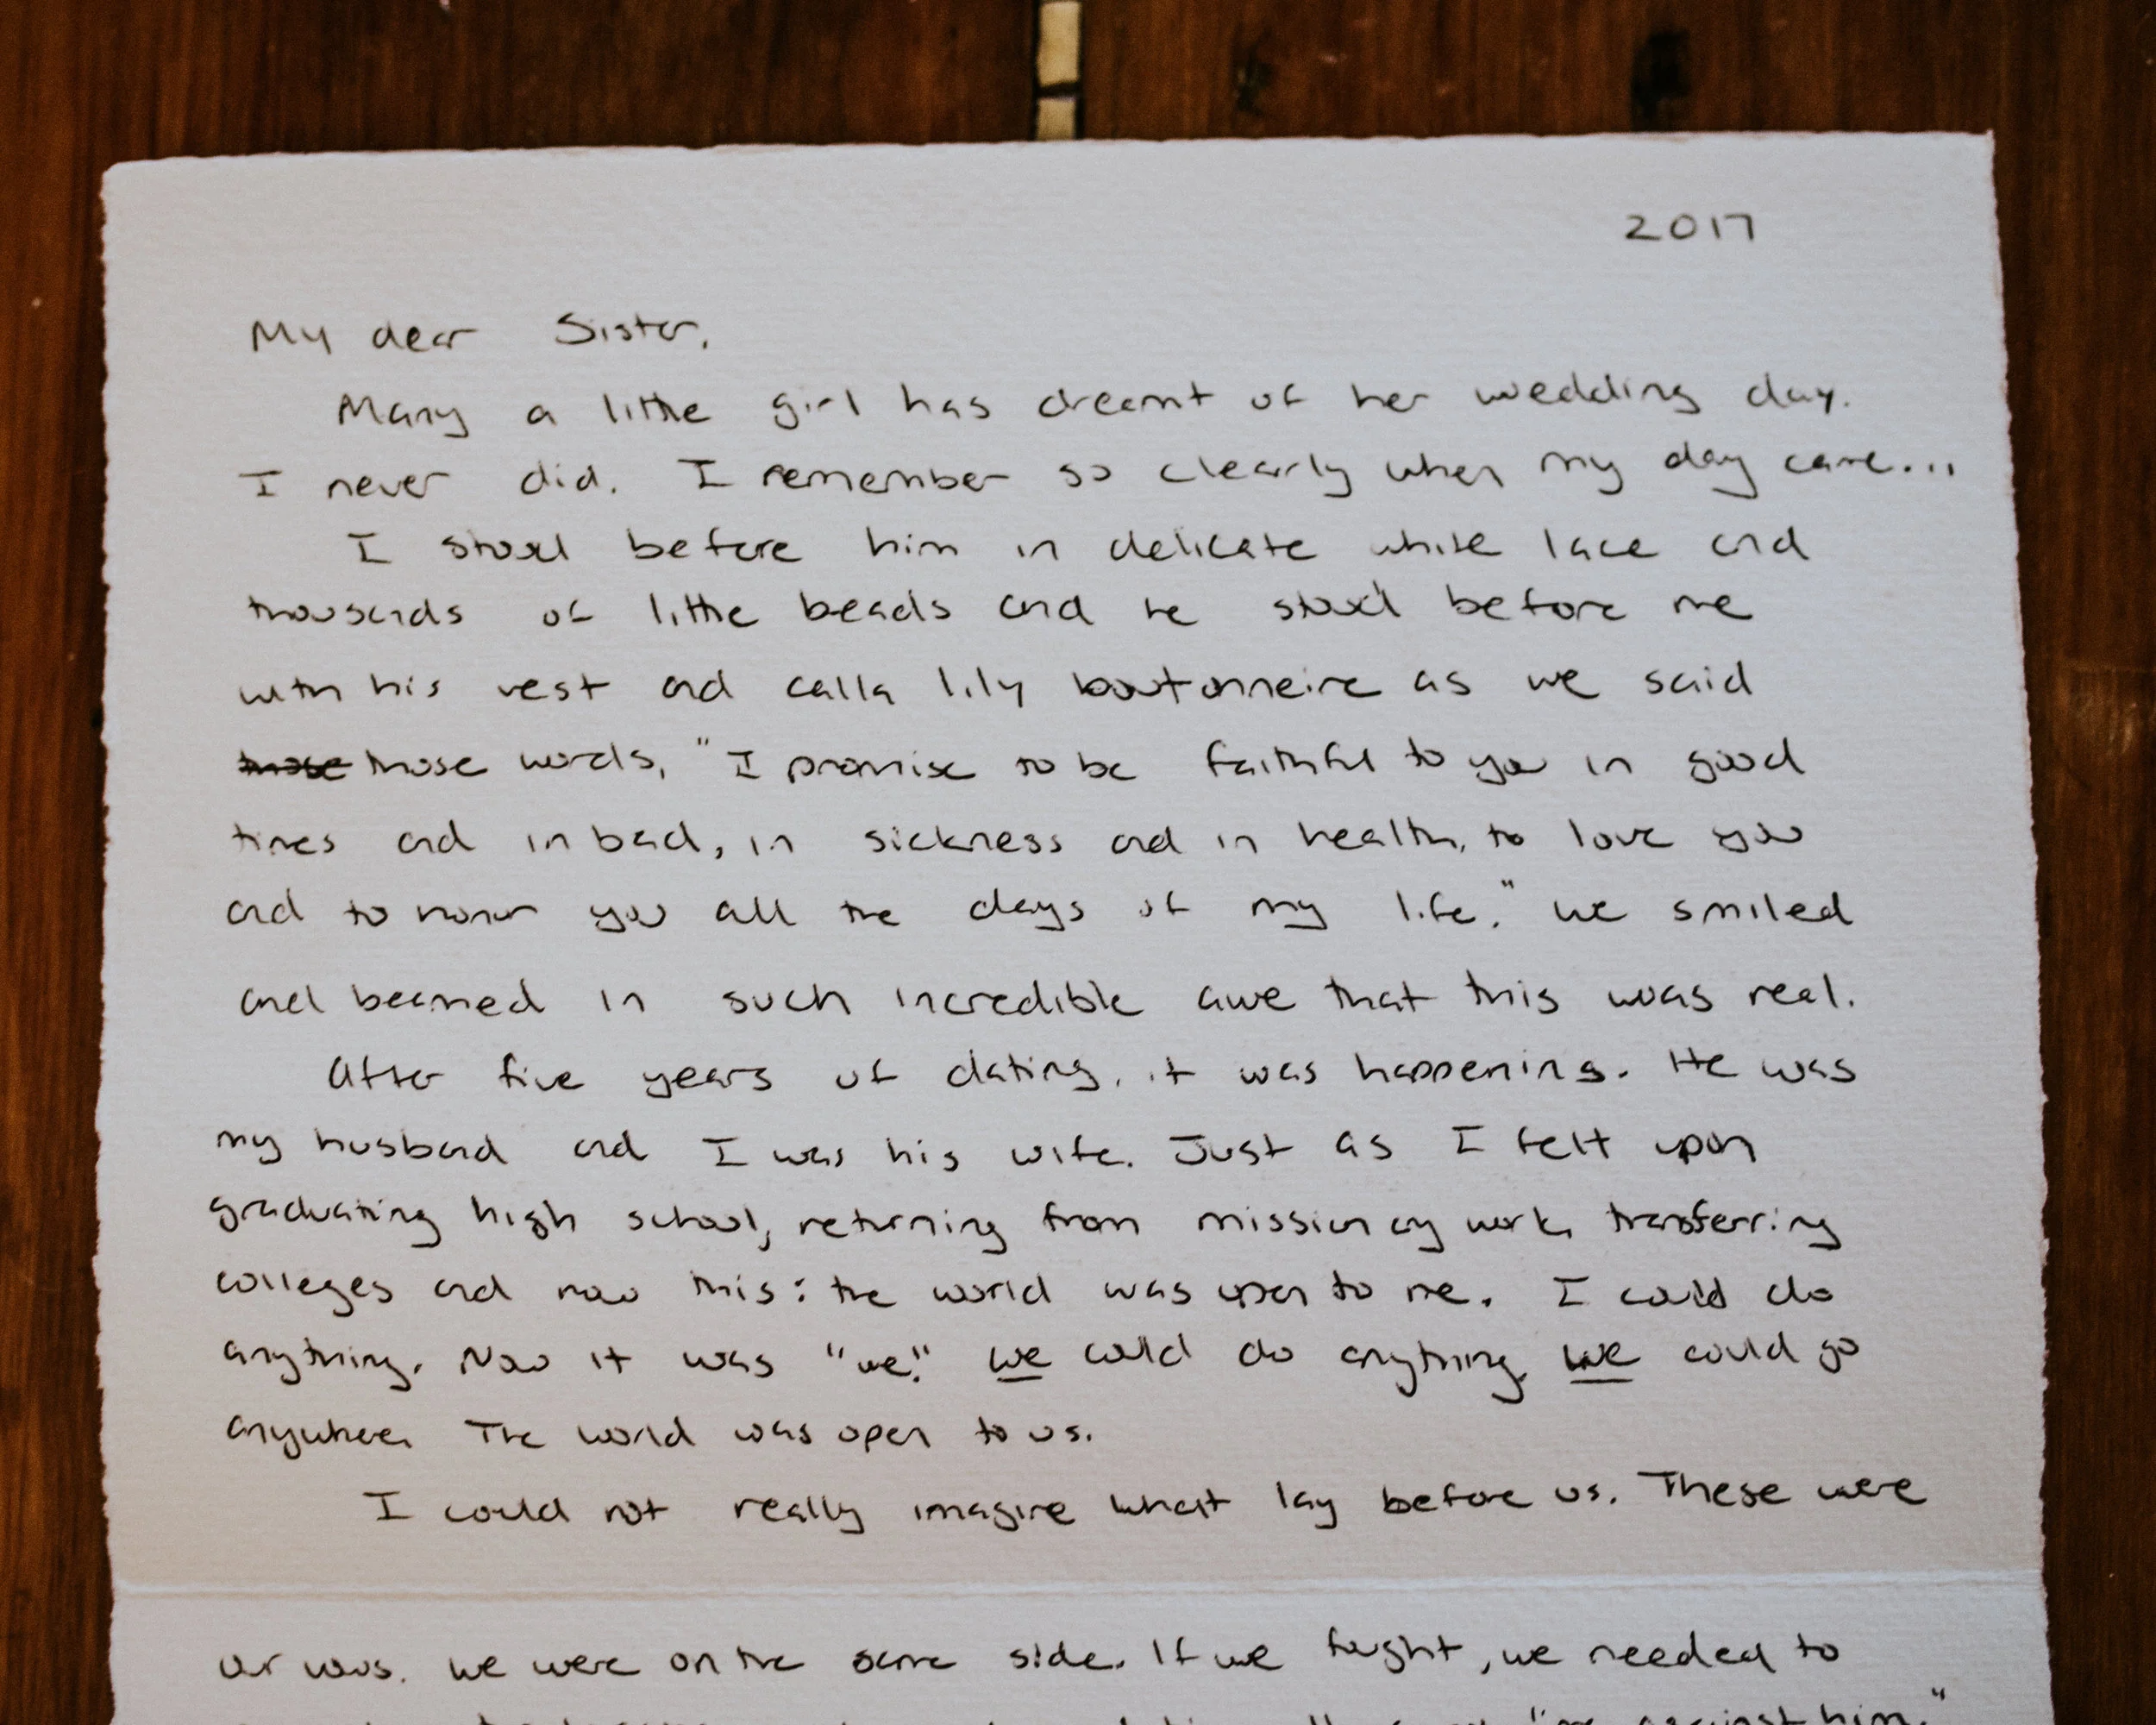 2017
My dear Sister,
Many a little girl has dreamt of her wedding day.
I never did. I remember so clearly when my day came...
I stood before him in delicate white lace and
thousands of little beads and he stood before me
with his vest and calla lily boutonneire as we said
those those words, "I promise to be faithful to you in good
times and in bad, in sickness and in health, to love you
and to honor you all the days of my life." We smiled
and beamed in such incredible awe that this was real.
After five years of dating, it was happening. He was
my husband and I was his wife. Just as I felt upon
graduating high school, returning from missionary work, transferring
colleges and now this: the world was open to me. I could do
anything. Now it was "we." We could do anything. We could go
anywhere. The world was open to us.
I could not really imagine what lay before us. These were
our vows. We were on the same side. If we fought, we needed to
against him."